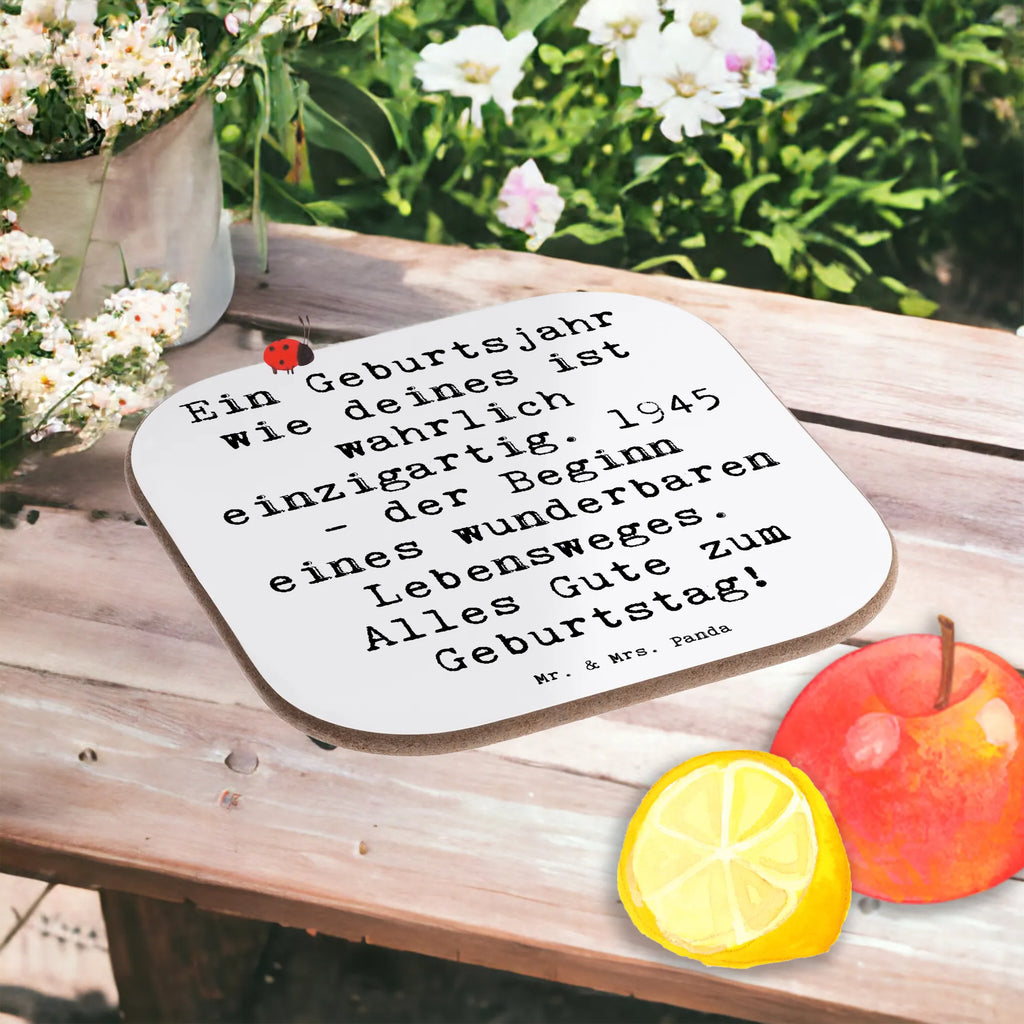 Ein Geburtsjahr
wie deines ist
wahrlich
einzigartig. 1945
- der Beginn
eines wunderbaren
Lebensweges.
Alles Gute zum
Geburtstag!
Mr. & Mrs. Panda